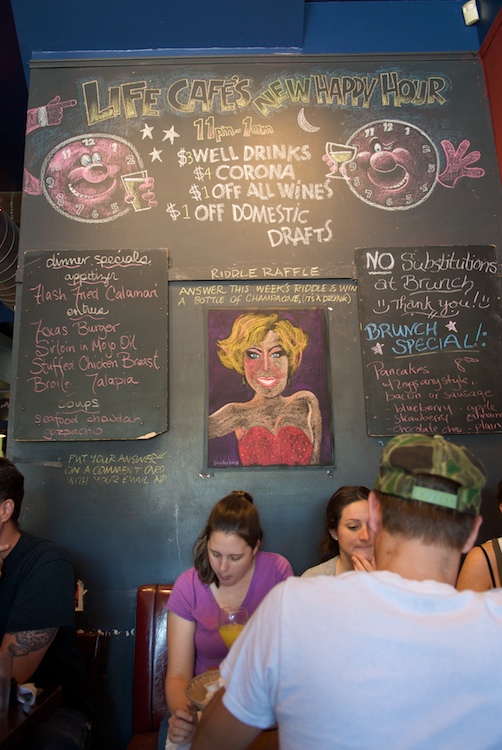 LIFE CAFE'S NEW HAPPY HOUR
11pm - 1am
$3 WELL DRINKS
$4 CORONA,
$1 OFF ALL WINES
$1 OFF DOMESTIC
DRAFTS
RIDDLE RAFFLE
ANSWER THIS WEEK'S RIDDLE & WIN
A BOTTLE OF CHAMPAGNE, (ITS A DRINK)
dinner specials
appetizer
Flash Fried Calamari
entrees
Texas Burger
Sirloin in Mojo Oil
Stuffed Chicken Breast
Broiled Talapia
soups
seafood chowdah
gazpacho
PUT YOUR ANSWER
ON A COMMENT CARD
WITH YOUR EMAIL
NO Substitutions
at Brunch
Thank you!
BRUNCH
SPECIAL!
Pancakes
bacon or sausage
- blueberry - apple
- strawberry
- chocolate chip - plain